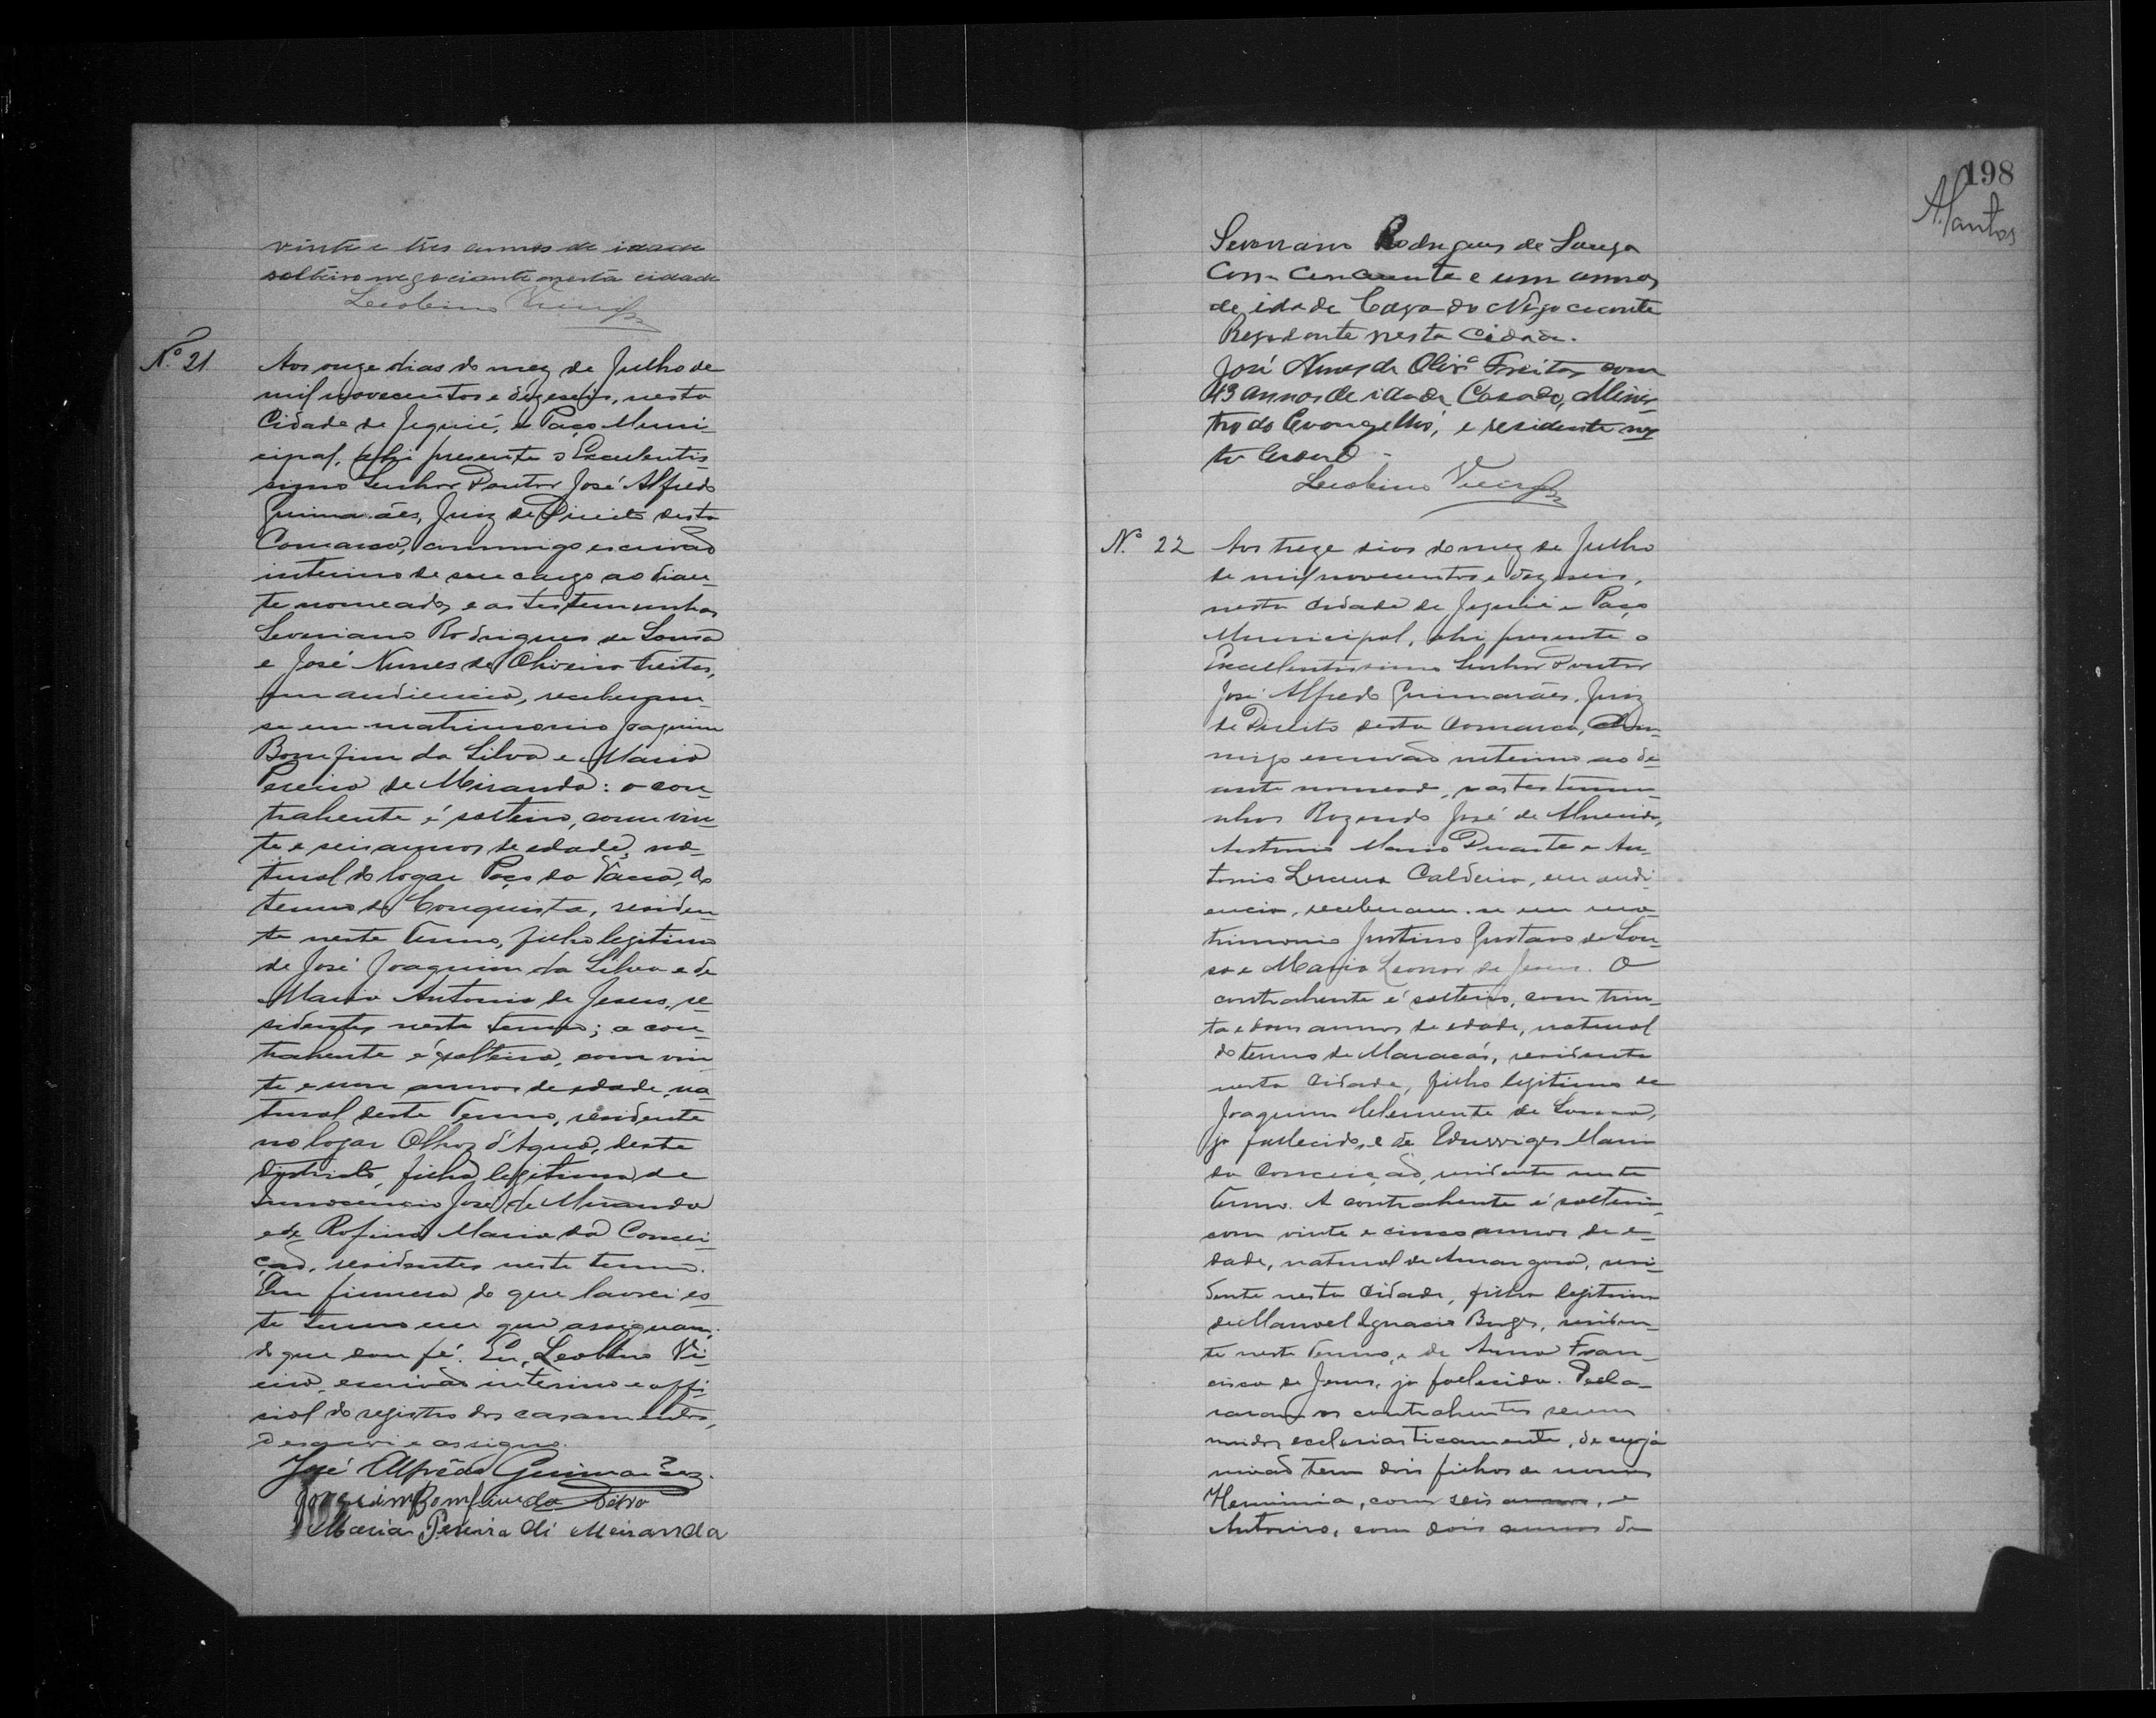 vinte e tres annos de idade
solteiro negociante nesta cidade
Leobino Vieira
Nº 21 Aos onze dias do mez de Julho de
mil novecentos e dezeseis, nesta
Cidade de Jequié, e Paço Muni-
cipal, ahi presente o Excelentis-
simo Senhor Doutor José Alfredo
Guimarães, Juiz de Direito desta
Comarca, commigo escrivão
interino de seu cargo ao dian-
te nomeado, e as testemunhas
Severiano Rodrigues de Sousa
e José Nunes de Oliveira Freitas,
em audiencia, receberam-
se em matrimonio Joaquim
Bomfim da Silva e Maria
Pereira de Miranda: o con-
trahente é solteiro, com vin-
te e seis annos de edade, na-
tural do logar Poço da Vacca, do
termo de Conquista, residen-
te neste Termo, filho legitimo
de José Joaquim da Silva e de
Maria Antonia de Jesus, re-
sidentes neste termo; a con-
trahente é solteira, com vin-
te e um annos de edade, na-
tural deste Termo, residente
no logar Olhos d'Agua, deste
districto, filha legitima de
Innocencio José de Miranda
e de Rofina Maria da Concei-
ção, residentes neste termo.
Em firmesa do que lavrei es-
te termo em que assignam,
do que dou fé. Eu, Leobino Vi-
eira, escrivão interino e offi-
cial do registro dos casamentos,
escrevi e assigno.
José Alfrêdo Guimarães.
Joaquim Bomfim da Silva
Maria Pereira di Meiranda
198
A. Santos
Severiano Rodrigues de Souza
Com Cincoenta e um annos
de idade Cazado Negociante
Rezidente nesta Cidade.
José Nunes de Olivª Freitas com
43 annos de idade Casado, Minis-
tro do Evangelho, e residente nes-
ta
Leobino Vieira
Nº 22 Aos treze dias do mez de Julho
de mil novecentos e dezeseis,
nesta cidade de Jequié e Paço
Municipal, ahi presente o
Excellentissimo Senhor Doutor
José Alfredo Guimarães, Juiz
de Direito desta Comarca, Com-
migo escrivão interino ao di-
ante nomeado, e as testemu-
nhas Rozendo José de Almeida,
Antonio Mario Duarte e An-
tonio Lucena Caldeira, em audi-
encia, receberam-se em ma-
trimonio Justino Gustavo de Sou-
sa e Maria Leonor de Jesus. O
contrahente é solteiro, com trin-
ta e dous annos de edade, natural
do termo de Maracás, residente
nesta Cidade, filho legitimo de
Joaquim Clemente de Sousa,
ja fallecido, e de Eduvviges Maria
da Conceição, residente neste
Termo. A contrahente é solteira
com vinte e cinco annos de e-
dade, natural de Amargosa, resi-
dente nesta Cidade, filha legitima
de Manoel Ignacio Borges, residen-
te neste Termo, e de Anna Fran-
cisca de Jesus, ja fallecida. Decla-
raram os contrahentes serem
unidos ecclesiasticamente, de cuja
união tem dois filhos de nomes
Herminia, com seis annos, e
Antonio, com dois annos de